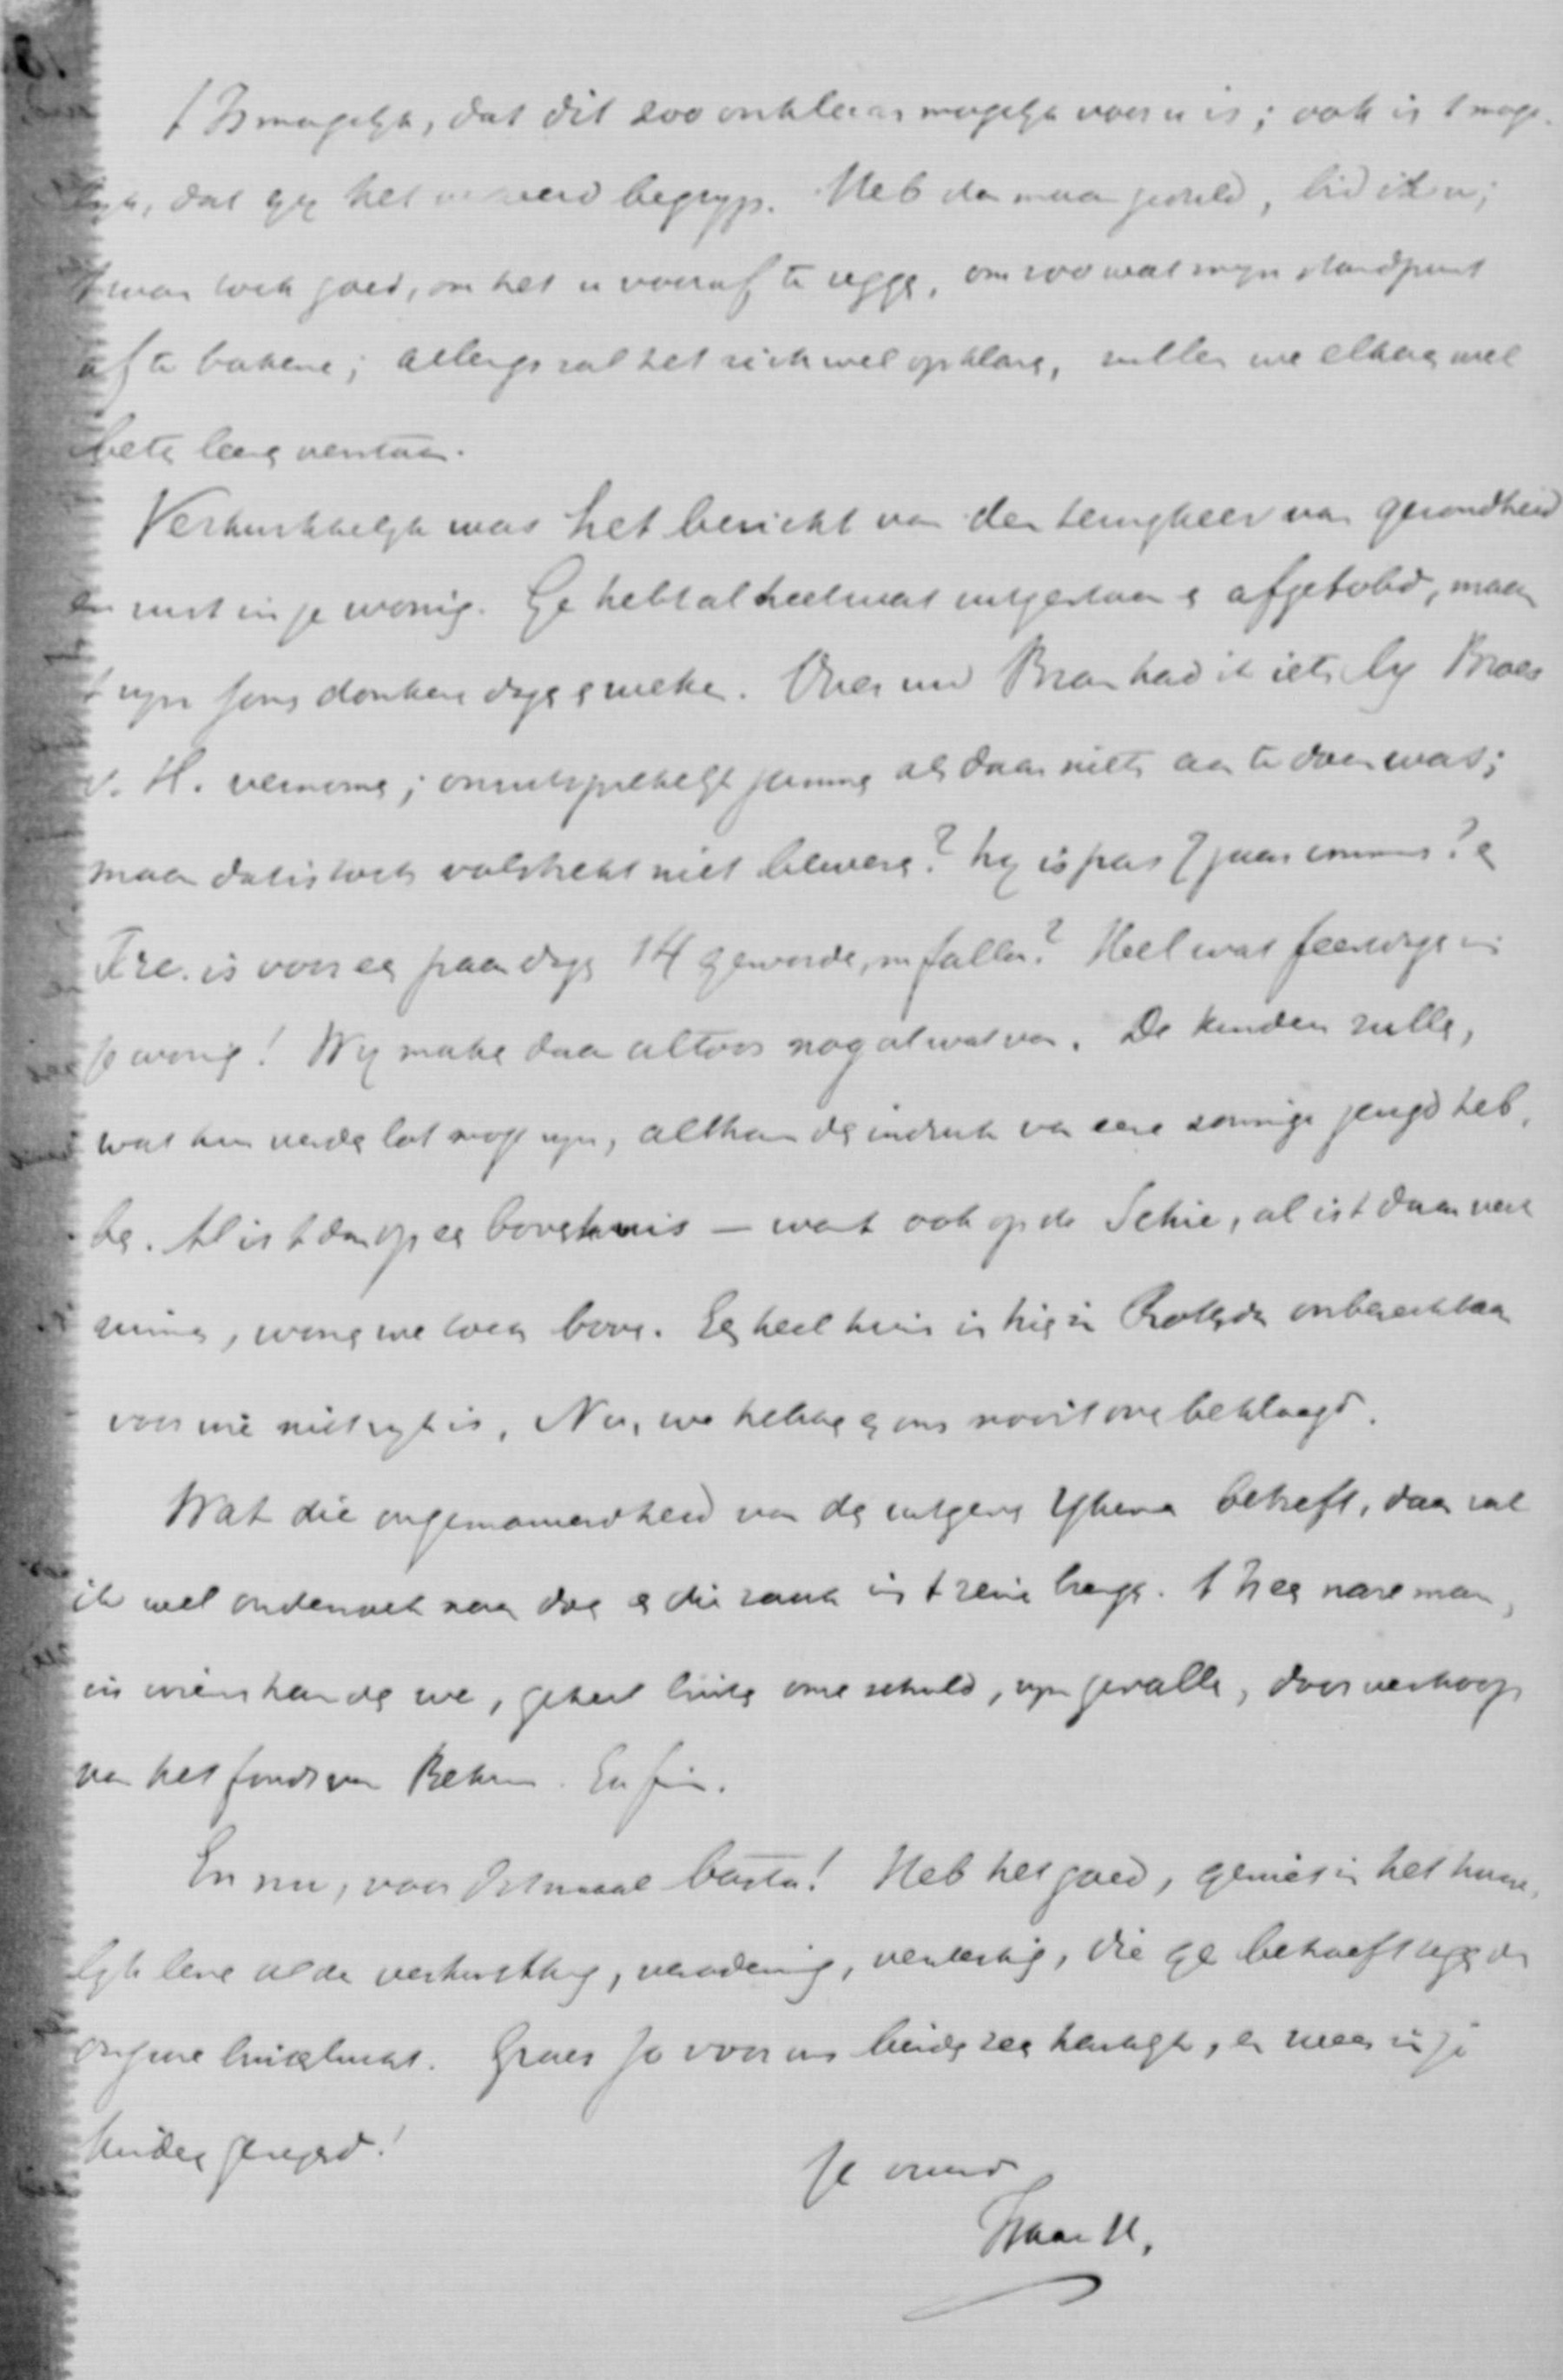 't Is mogelyk, dat dit zoo onklaar mogelyk voor u is; ook is 't moge-
lyk, dat gy het verkeerd begryp. Heb dan maar geduld, bid ik u;
't was toch goed, om het u vooraf te zegge, om zoo wat myn standpunt
af te bakene; allengs zal het zich wel opklare, zulle we elkaar wel
beter leere verstaan.
Verkwikkelyk was het bericht van den terugkeer van gezondheid
en rust in je woning. Ge hebt al heelwat uitgestaan en afgetobd, maar
't zyn soms donkere dage en weken. Over uw Bram had ik iets by Broes
v. H. vernome; onuitsprekelyk jammer als daar niets aan te doen was;
maar dat is toch volstrekt niet beweze? hy is pas 7 jaar immers? en
Fre. is voor een paar dage 14 geworde, Heel wat feestdage in
je woning! Wy make daar altoos nog al wat van. De kinderen zulle,
wat hun verder lot moge zyn, althans den indruk van eene zonnige jeugd heb-
be. Al is 't dan op een bovenhuis — want ook op de Schie, al is 't daar veel
ruimer, wone we toch bove. Een heel huis is hier in Rotterdam onbereikbaar
voor wie niet ryk is. Nu, we hebben er ons nooit over beklaagd.
Wat die ongemanierdheid van den uitgever betreft, daar zal
ik wel onderzoek naar doe en die zaak in 't reine brenge. 't Is een nare man,
in wiens handen we, geheel buiten onze schuld, zyn gevalle, door verkoop
van het fonds van Enfin.
En nu, voor ditmaal basta! Heb het goed, geniet in het huise-
lyk leve al de verkwikking, verademing, verlustig, die ge behoeft tegen de
ongure buitelucht. Groet Jo voor ons beide zeer hartelyk, en wees in je
kinderen gezegend!
Je vriend
Isaac H.